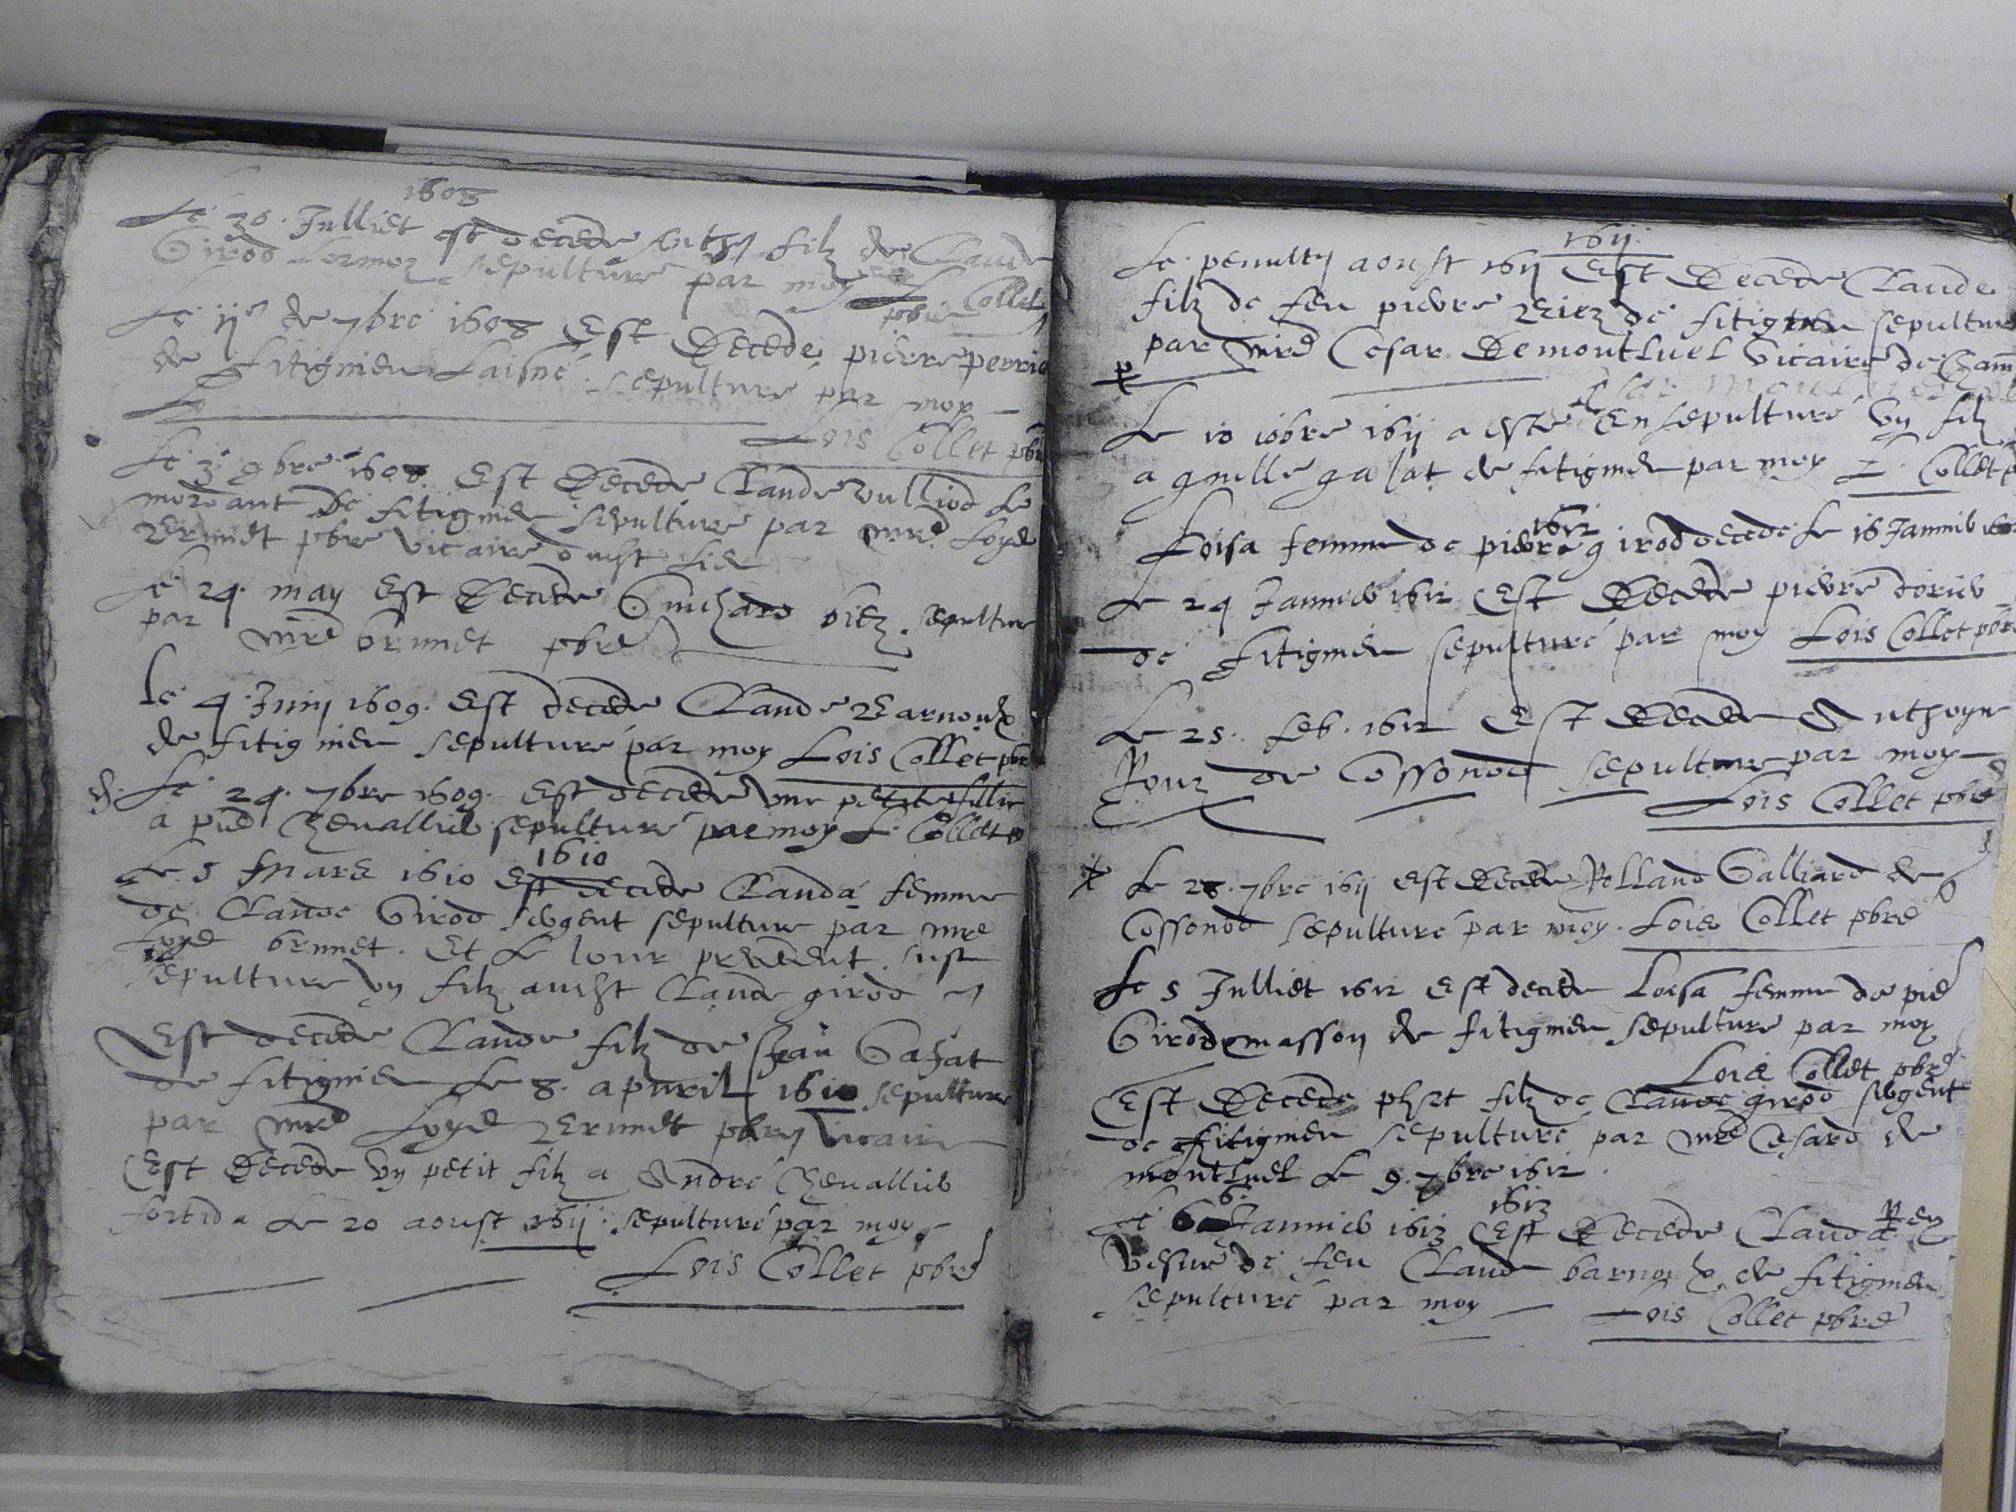 1608
Le 30. Julliet est decede filz de Claude
Girod sepulture par moy L. Collet
pbre
Le ij de 7bre 1608 Est Decede pierre perrie
de fitignieu Laisné sepulture par moy
Lois Collet pbre
Le 3 9bre 1608. Est Decede Claude vulliod de
mordant De fitignieu sepulture par mre Loys
brunet pbre vicaire dudit lieu
Le 24. may Est Decede Guichard biez. sepulture
par mre brunet pbre
Le 4 Juin 1609. Est decede Claude
de fitignieu sepulture par moy Lois Collet pbre
Le 24. 7bre 1609. Est decede une petite fillie
a pre Chevallier sepulture par moy L. Collet p
1610
Le 5 Mars 1610 Est decede Clauda femme
de Claude Girod sergent sepulture par mre
Loys brunet. Et le jour precedent fust
sepulture un filz audit Claude girod
Est decede Claude filz de Jean Gajat
de fitignieu le 8. apvril 1610 sepulture
par mre Loys brunet pbre vicaire
Est Decede un petit filz a André Chevallier
le 20 aoust 1611. sepulturé par moy
Lois Collet pbre
1611
Le penulti aoust 1611 Est Decede Claude
filz de feu pierre biez de fitignieu sepulture
par mre Cesar Demontluel vicaire de Cham
Le 10 10bre 1611 a esté Ensepulturé un filz
a gajat de fitignieu par moy L. Collet p
1612
Loisa femme de pierre girod decede le 16 Janvier
Le 24 Janvier 1612 Est Decede pierre
de fitignieu sepulturé par moy Lois Collet pbre
Le 25. feb. 1612 Est Decede Anthoyne
de Cossonod sepulture par moy
Lois Collet pbre
Le 28. 7bre 1611 est Decede Rolland Galliard de
Cossonod sepulturé par moy. Lois Collet pbre
Le 5 Julliet 1612 Est decede Loisa femme de pre
Girod masson de fitignieu sepulture par moy
Lois Collet pbre
Est Decede filz de Claude girod sergent
de fitignieu sepulturé par mre Cesard de
montluel le 9. 7bre 1612.
1613
Le 6 Janvier 1613 Est Decede Clauda Rey
vesve de feu Claude de fitignieu
sepulturé par moy Lois Collet pbre